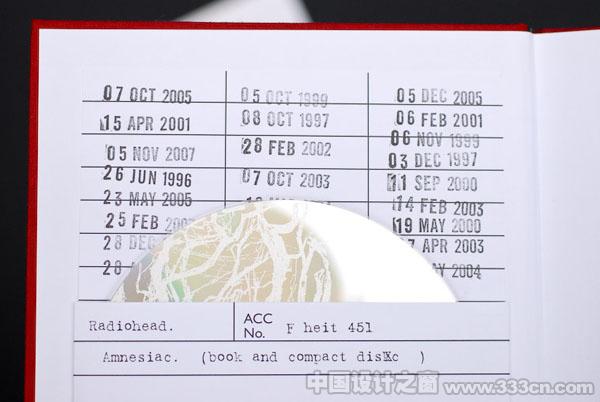 07 OCT 2005 05 OCT 1999 05 DEC 2005
15 APR 2001 08 OCT 1997 06 FEB 2001
05 NOV 2007 28 FEB 2002 06 NOV 1999
26 JUN 1996 07 OCT 2003 03 DEC 1997
23 MAY 2005 11 SEP 2000
25 FEB 14 FEB 2003
28 DEC 19 MAY 2000
APR 2003
2004
Radiohead. ACC No. F heit 451
Amnesiac. (book and compact disc )
中国设计之窗 www.333cn.com